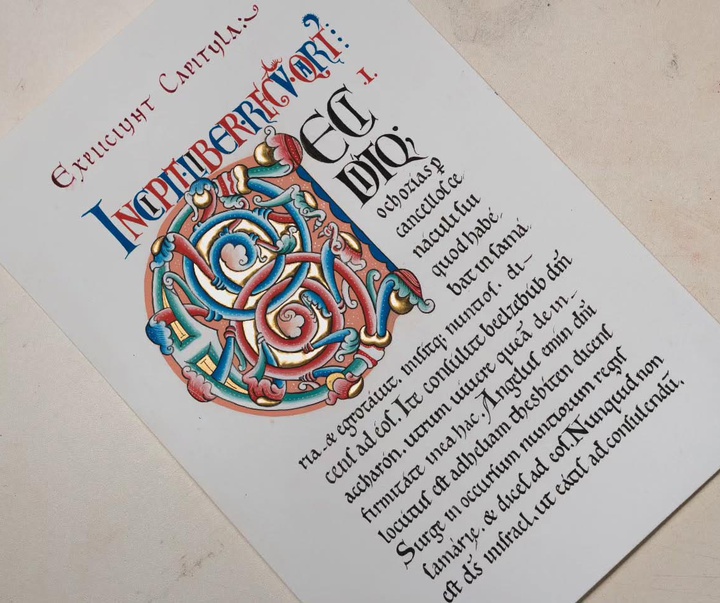 Expliciunt Capitula:~
INCIPIT·LIBER·REGV·QRT:
I.
CECI
DITQ;
ochozias p̱
cancellos ce
náculi sui
quod habé
bat in samá
ria. & egrotáuit. misítq; nuntios. di-
cens ad eos. Ite consúlite beelzebúb dm̄
áccharón. utrum uíuere queā de in-
firmitáte mea hac. Angelus
locútus est ad heliam thesbíten dicens
Surge in occursum nuntiorum regis
samárię. & dices ad eos. Nunquid non
est ds̄ in israel. ut eátis ad consulendū.